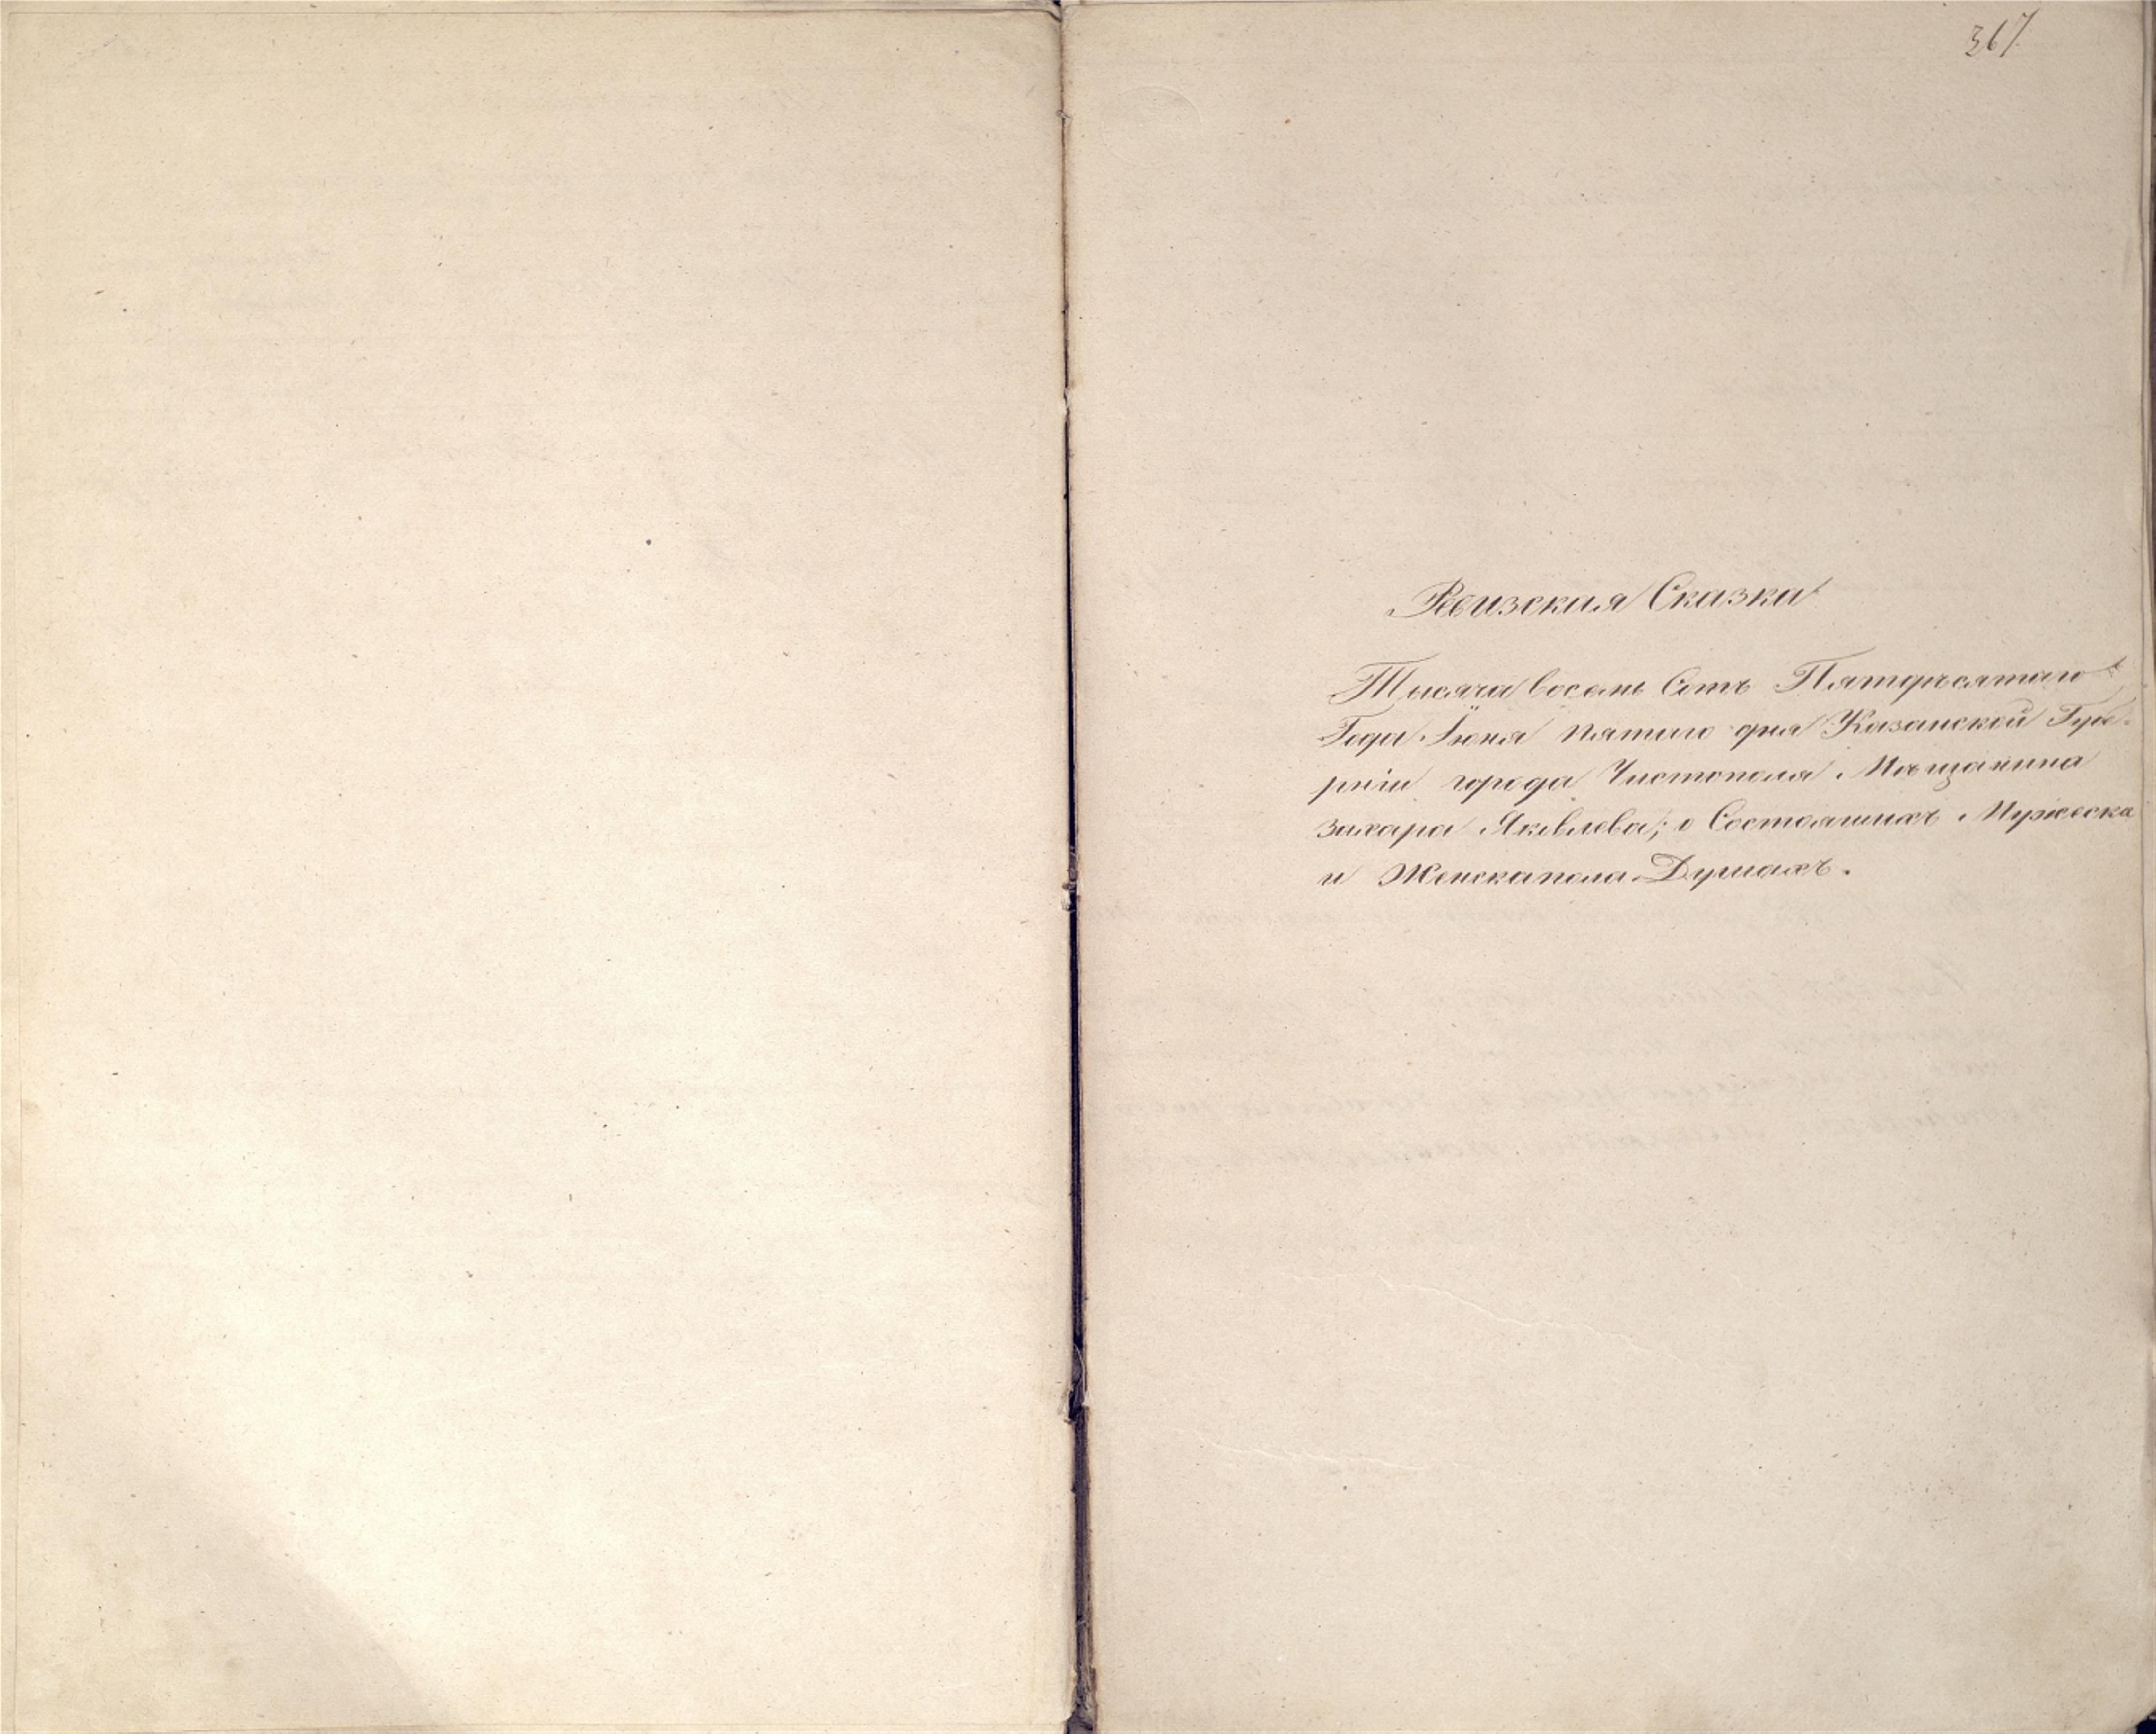 367
Ревизская Сказка
Тысяча восемь Сотъ Пятдесятаго
Года Іюня пятаго дня Казанской Губе-
рніи города Чистополя Мѣщанина
Захара Яковлева; о Состоящихъ Мужеска
и Женска пола Душахъ.